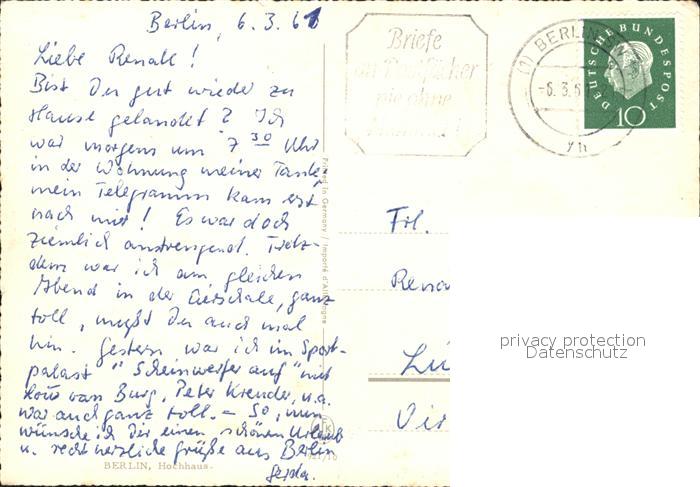 Berlin, 6.3.61
Liebe Renate!
Bist Du gut wieder zu
Hause gelandet? Ich
war morgens um 7 30 Uhr
in der Wohnung meiner Tante,
mein Telegramm kam erst
nach mir! Es war doch
ziemlich anstrengend. Trotz-
dem war ich am gleichen
Abend in der Eierschale, ganz
toll, mußt Du auch mal
hin. Gestern war ich im Sport-
palast "Scheinwerfer auf" mit
Lou van Burg, Peter Kreuder, u.a.
war auch ganz toll. – So, nun
wünsche ich Dir einen schönen Urlaub
u. recht herzliche Grüße aus Berlin
Gerda.
BERLIN, Hochhaus.
Printed in Germany / Importé d'Allemagne
Briefe
an Postfächer
nie ohne
(1) BERLIN
-6.3.6
DEUTSCHE BUNDESPOST
10
Frl.
Rena
Lü
privacy protection
Datenschutz